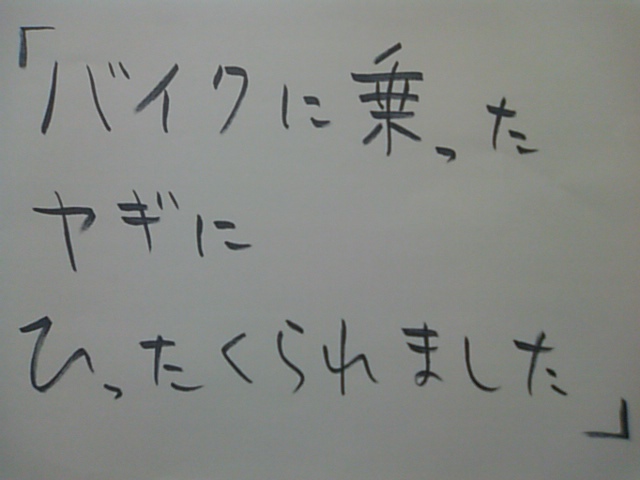 「バイクに乗った
ヤギに
ひったくられました」